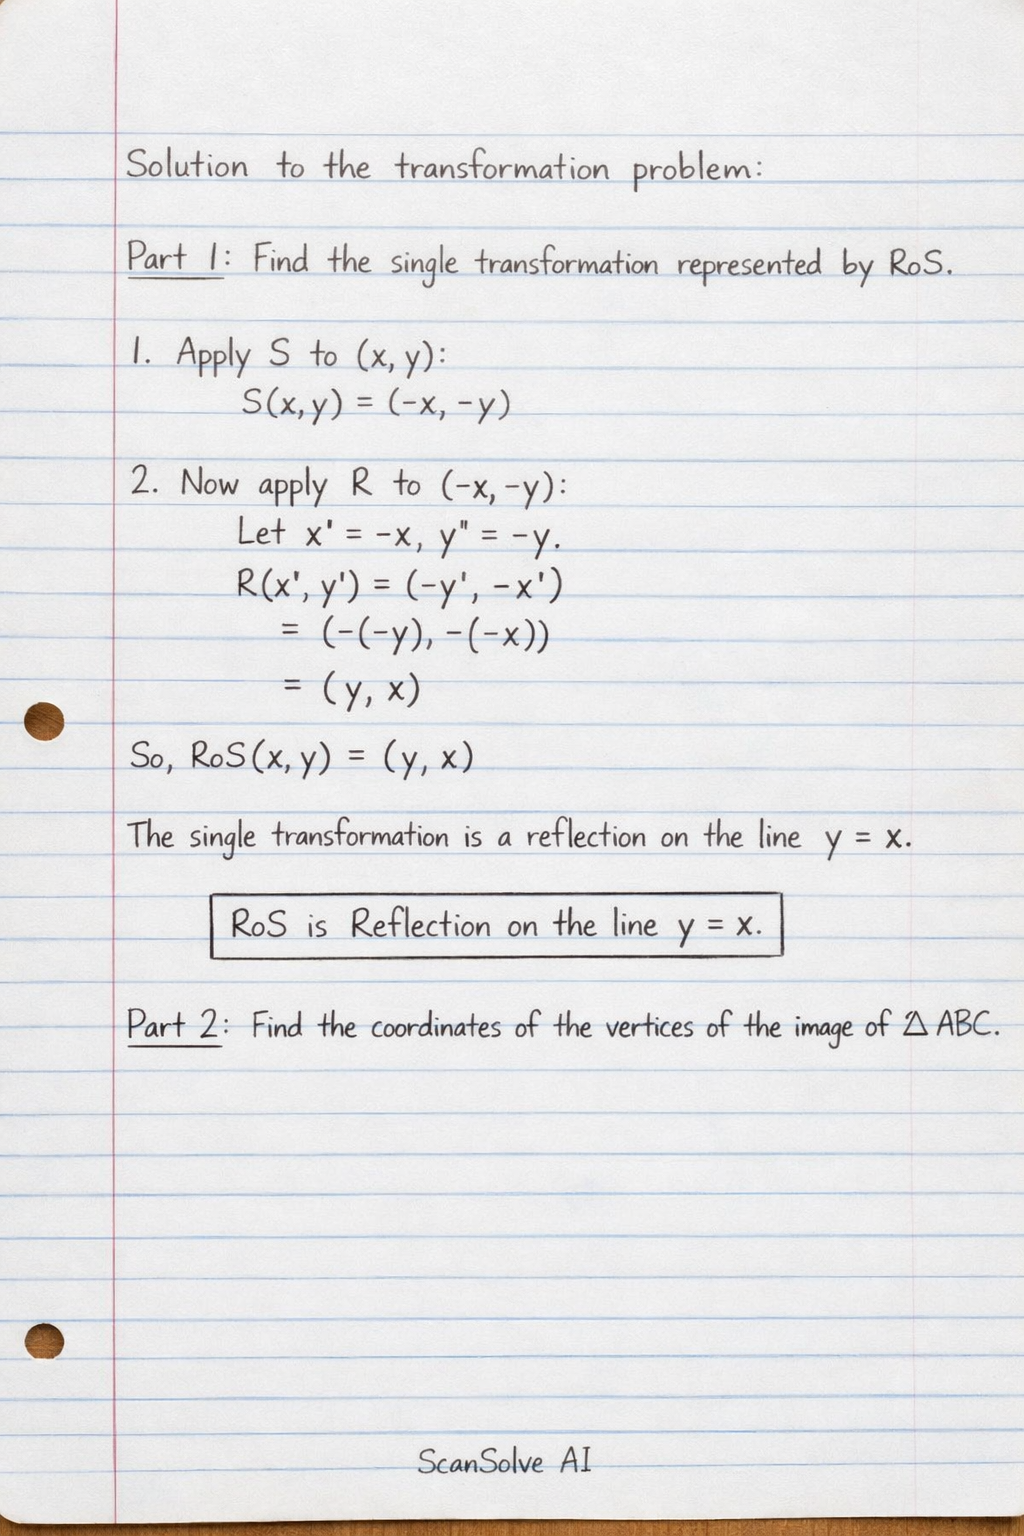 Solution to the transformation problem:
Part 1: Find the single transformation represented by RoS.
1. Apply S to (x, y):
S(x,y) = (-x, -y)
2. Now apply R to (-x, -y):
Let x' = -x, y" = -y.
R(x', y') = (-y', -x')
= (-(-y), -(-x))
= (y, x)
So, RoS(x, y) = (y, x)
The single transformation is a reflection on the line y = x.
RoS is Reflection on the line y = x.
Part 2: Find the coordinates of the vertices of the image of △ ABC.
ScanSolve AI